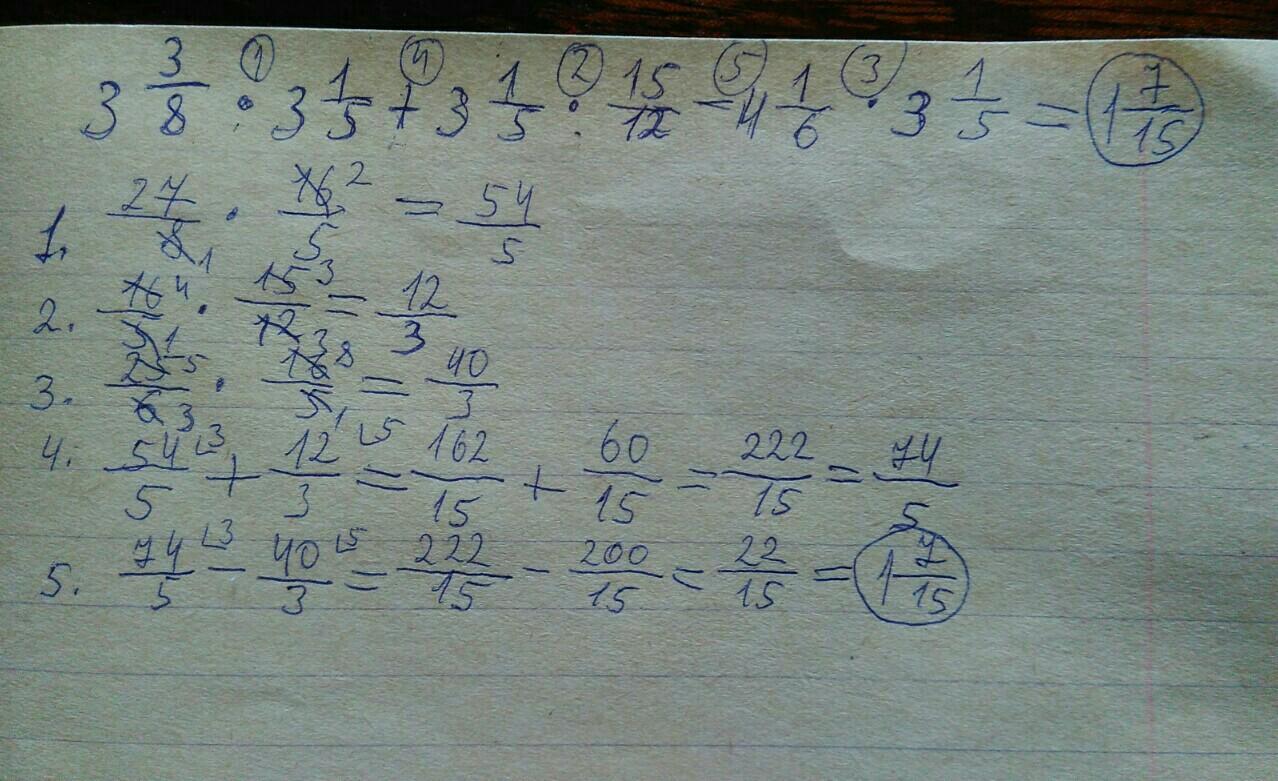 3 3/8 ① · 3 1/5 ④ + 3 1/5 ② · 15/12 ⑤ - 4 1/6 ③ · 3 1/5 = 1 7/15
1. 27/8 1 · 16 2/5 = 54/5
2. 16 4/5 1 · 15 3/12 3 = 12/3
3. 25 5/6 3 · 16 8/5 1 = 40/3
4. 54 ⌊3/5 + 12 ⌊5/3 = 162/15 + 60/15 = 222/15 = 74/5
5. 74 ⌊3/5 - 40 ⌊5/3 = 222/15 - 200/15 = 22/15 = 1 7/15